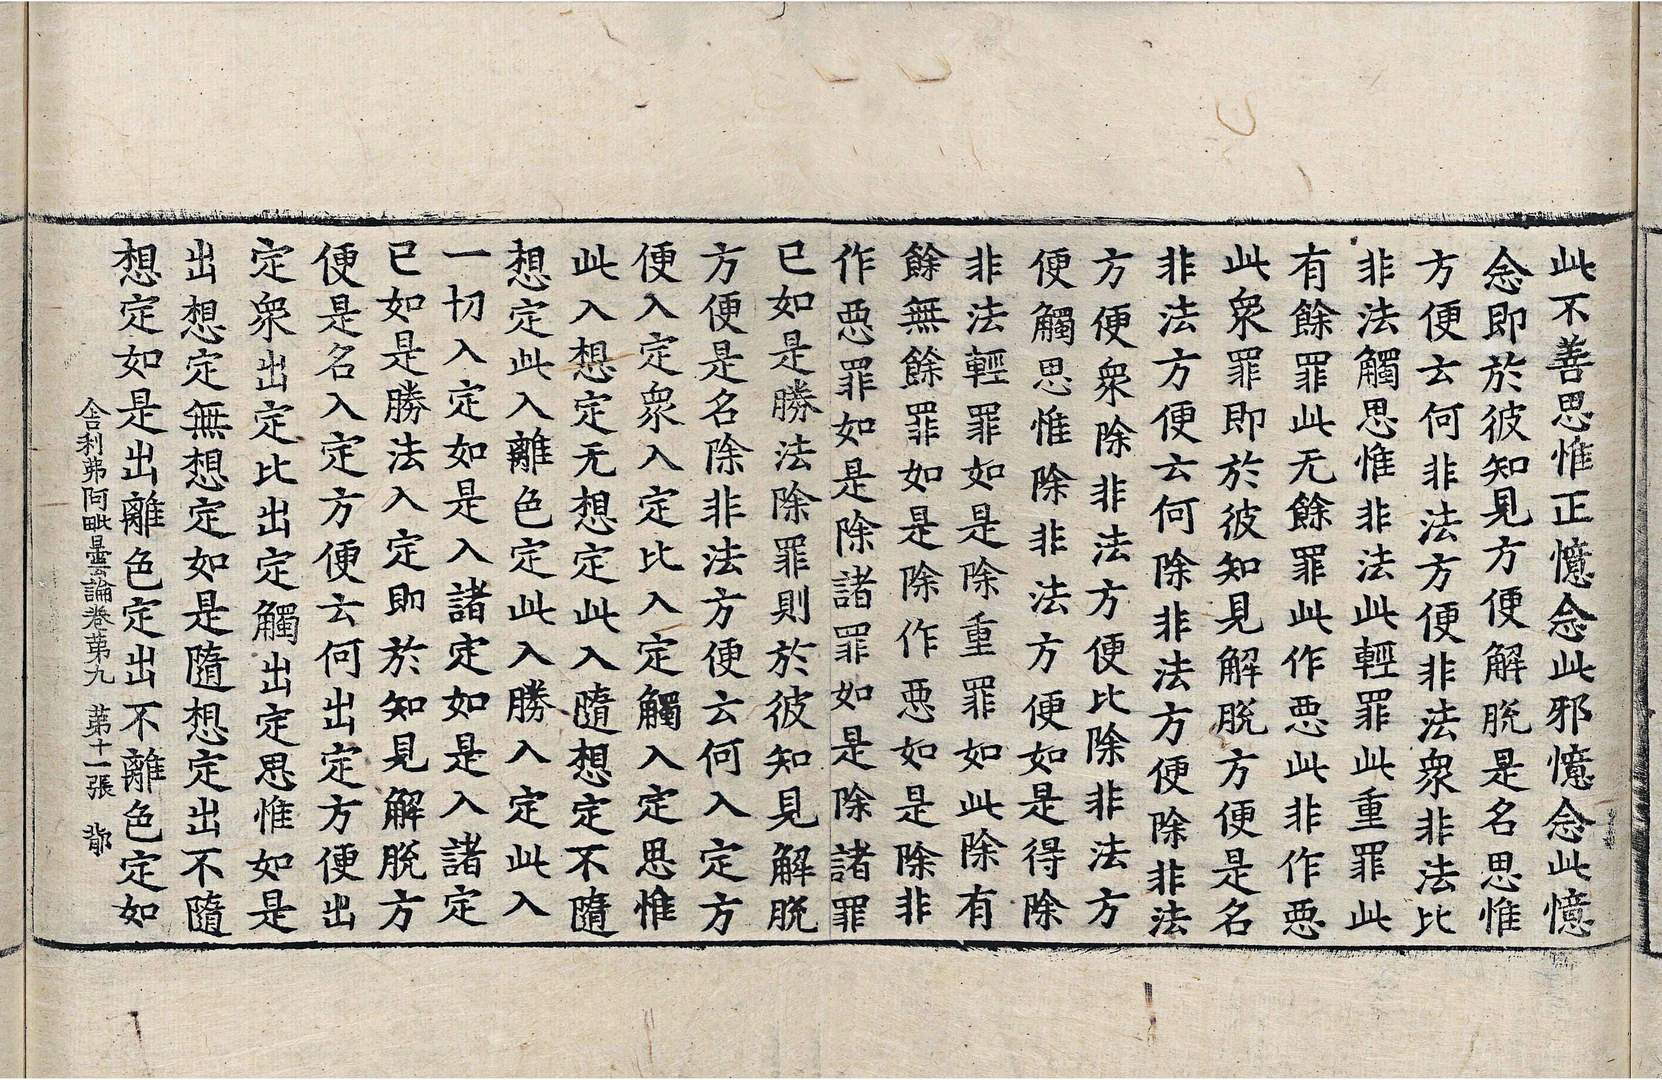 此不善思惟正憶念此邪憶念此憶
念即於彼知見方便解脫是名思惟
方便云何非法方便非法衆非法比
非法觸思惟非法此輕罪此重罪此
有餘罪此无餘罪此作惡此非作惡
此衆罪即於彼知見解脫方便是名
非法方便云何除非法方便除非法
方便衆除非法方便比除非法方
便觸思惟除非法方便如是得除
非法輕罪如是除重罪如此除有
餘無餘罪如是除作惡如是除非
作惡罪如是除諸罪如是除諸罪
已如是勝法除罪則於彼知見解脫
方便是名除非法方便云何入定方
便入定衆入定比入定觸入定思惟
此入想定无想定此入隨想定不隨
想定此入離色定此入勝入定此入
一切入定如是入諸定如是入諸定
已如是勝法入定即於知見解脫方
便是名入定方便云何出定方便出
定衆出定比出定觸出定思惟如是
出想定無想定如是隨想定出不隨
想定如是出離色定出不離色定如
舍利弗阿毗曇論卷第九 第十一張